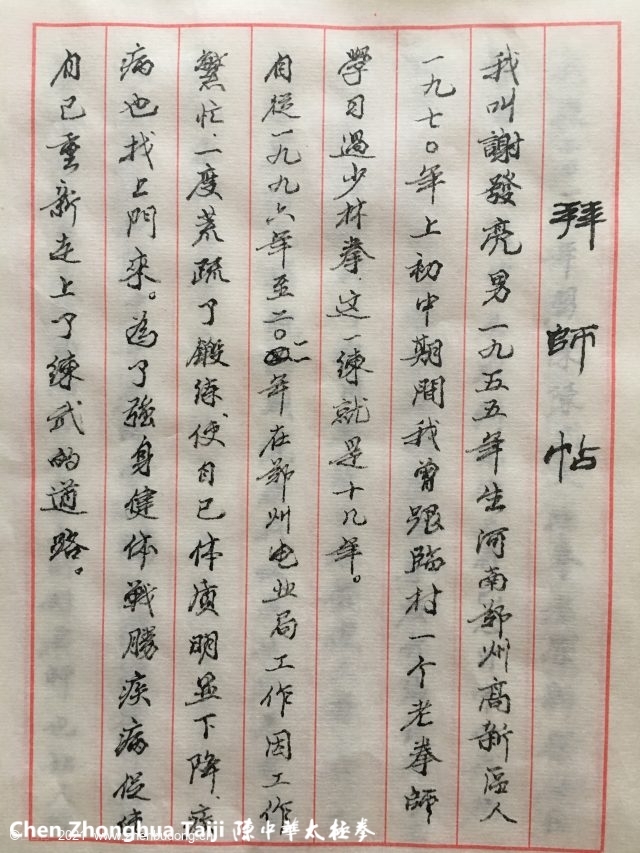 拜師帖
我叫謝發亮男一九五五年生河南郑州高新區人
一九七〇年上初中期間我曾跟临村一个老拳師
學习過少林拳.这一練就是十几年。
自從一九九六年至二〇二年在郑州电业局工作因工作
繁忙.一度荒疏了鍛練,使自已体质明显下降,疾
病也找上門来。為了強身健体戰勝疾病促使
自已重新走上了練武的道路。
© 2021 www.chenbudong.cn
Chen Zhonghua Taiji 陳中華太極拳